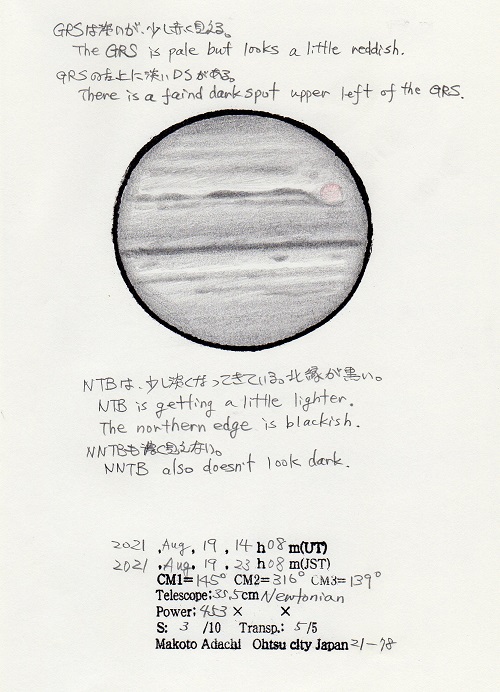 GRSは淡いが、少し赤く見える。
The GRS is pale but looks a little reddish.
GRSの左上に淡いDSがある。
There is a faind dark spot upper left of the GRS.
NTBは、少し淡くなってきている。北縁が黒い。
NTB is getting a little lighter.
The northern edge is blackish.
NNTBも濃く見えない。
NNTB also doesn't look dark.
2021 , Aug , 19 , 14 h 08 m(UT)
2021 , Aug , 19 , 23 h 08 m(JST)
CM1= 145° CM2= 316° CM3= 139°
Telescope; 35.5cm Newtonian
Power; 453 × ×
S: 3 /10 Transp.: 5/5
Makoto Adachi Ohtsu city Japan 21-78